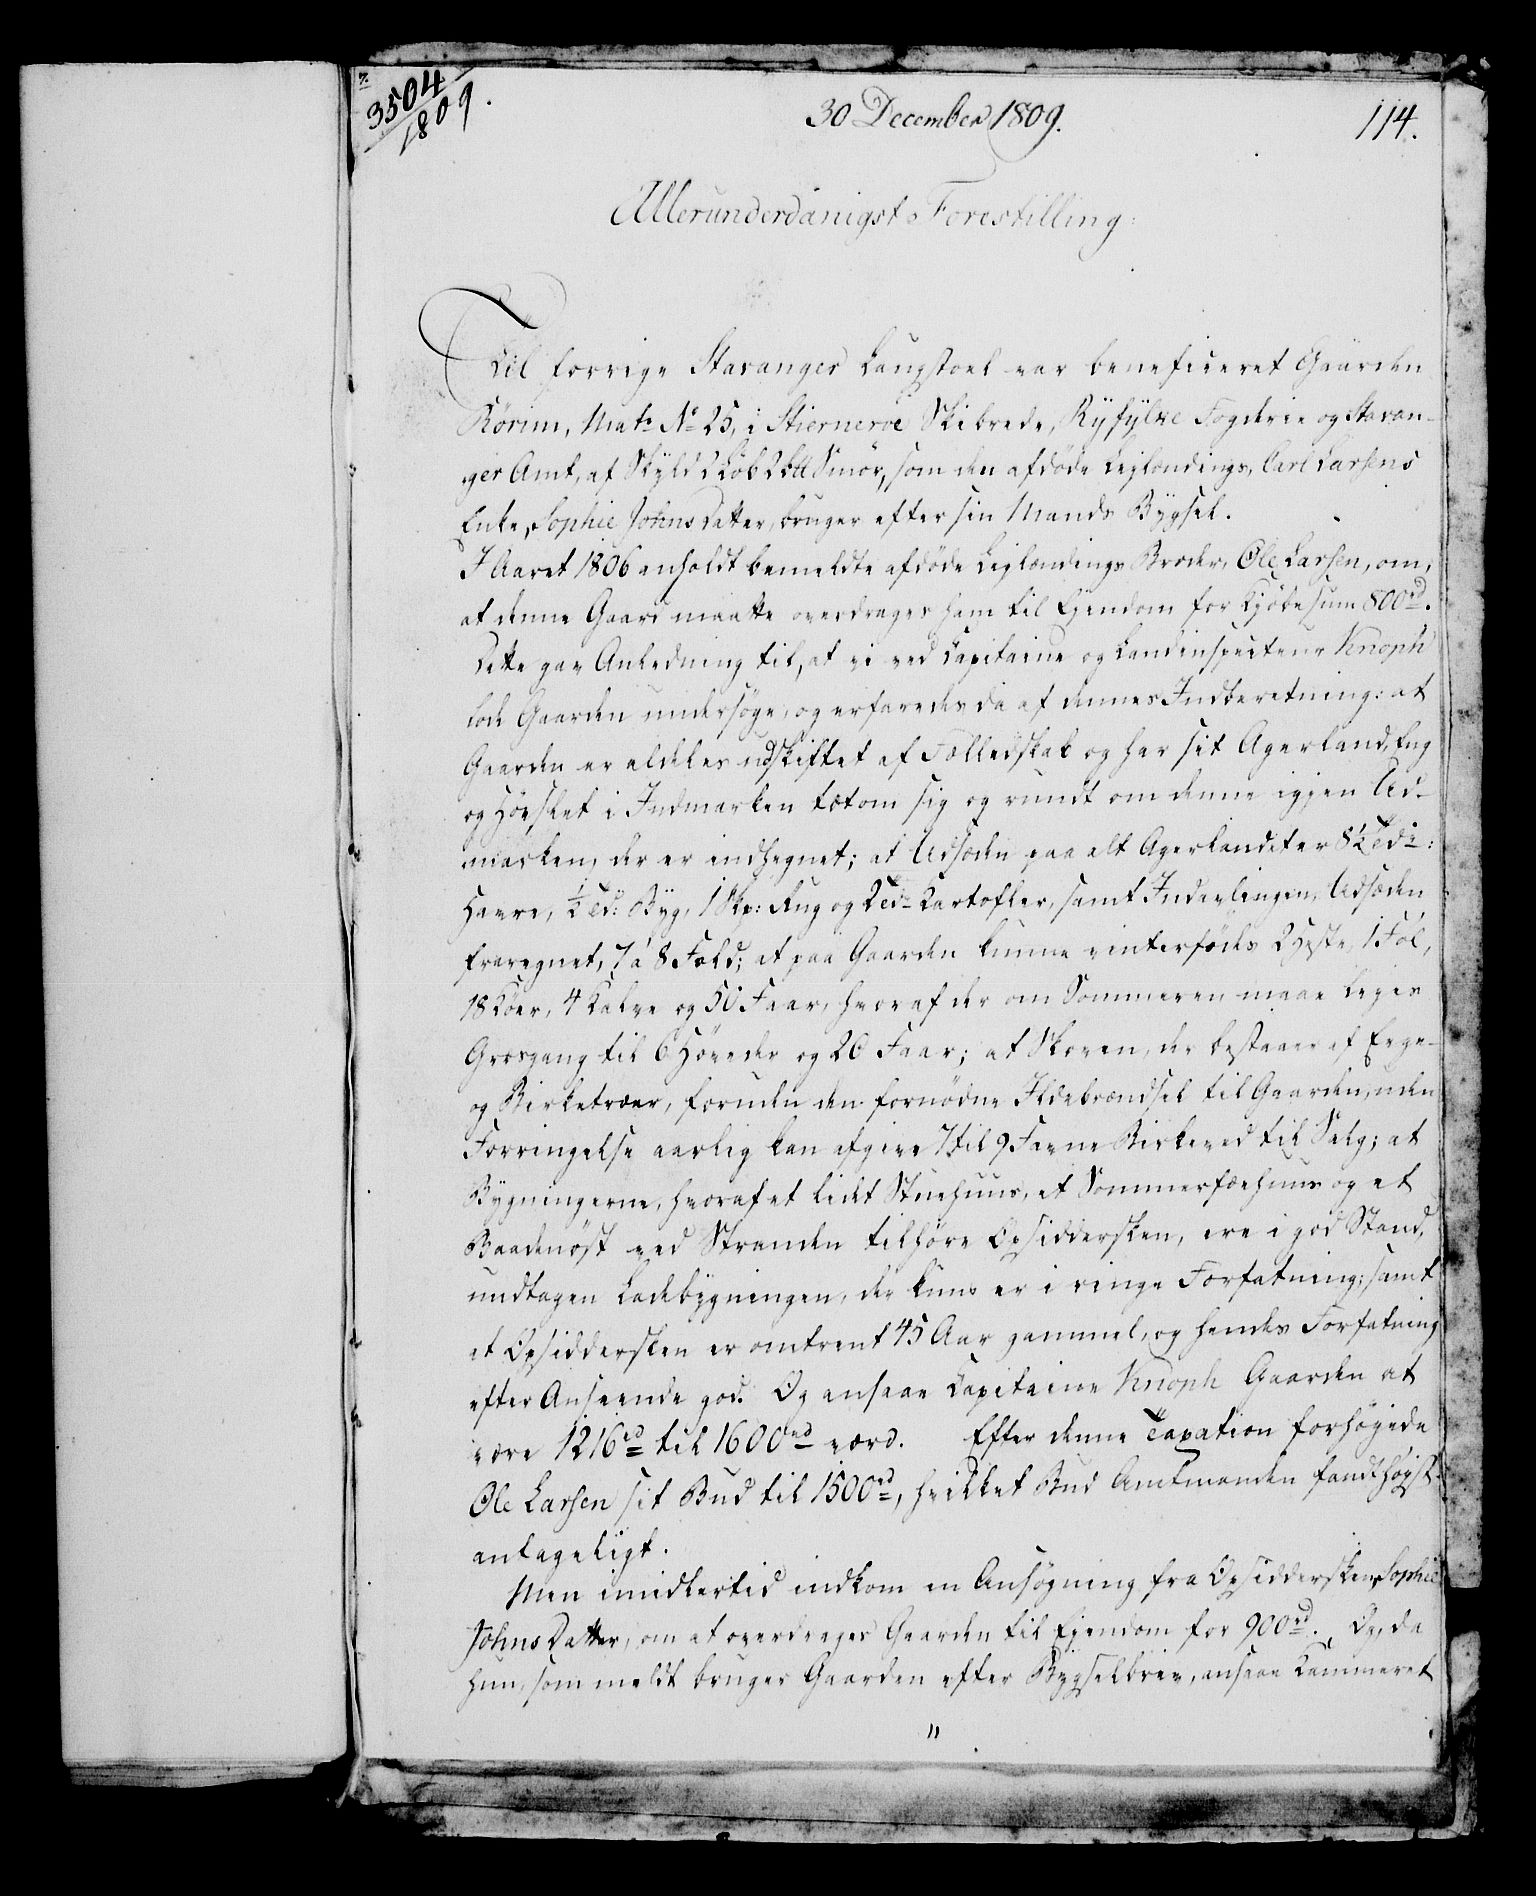 7.
3504
1809.
30 December 1809.
114.
Allerunderdanigst Forestilling:
Til forrige Stavanger Laugstoel var beneficeret Gaarden
Körim, Matr. No 25, i Stiernerøe Skibrede, Ryfylke Fogderie og Stavan-
ger Amt, af Skyld 2 Løb 2 Smør, som den afdøde Lejlændings, Carl Larsens
Enke, Sophie Johnsdatter, bruger efter sin Mands Bygsel.
I Aaret 1806 anholdt bemeldte afdøde Leilændings Broder, Ole Larsen, om,
at denne Gaard maatte overdrages ham til Ejendom for Kjøbesum 800 rd.
Dette gav Anledning til, at vi ved Capitaine og Landinspecteur Knoph
lode Gaarden undersøge, og erfaredes da af dennes Indberetning: at
Gaarden er aldeles udskiftet af Fælledskab og har sit Agerland, Eng
og Høeslet i Indmarken tæt om sig og rundt om denne igjen Ud-
marken, der er indhegnet; at Udsæden paa alt Agerlandet er 8½ Tdr:
Havre, ½ Td: Byg, 1 Skp: Rug og 2 Tdr Kartofler, samt Indavlingen, Udsæden
fraregnet, 7 à 8 Fold; at paa Gaarden kunne vinterfødes 2 Heste, 1 Føl,
18 Køer, 4 Kalve og 50 Faar, hvoraf der om Sommeren maae lejes
Græsgang til 6 Høveder og 20 Faar; at Skoven, der bestaaer af Eege-
og Birketræer, foruden den fornødne Ildebrændsel til Gaarden, uden
Forringelse aarlig kan afgive 7 til 9 Favne Birkeved til Salg; at
Bygningerne, hvoraf et lidet Stuehuus, et Sommerfæehuus og et
Baadenøst ved Stranden tilhøre Opsiddersken, ere i god Stand,
undtagen Ladebygningen, der kuns er i ringe Forfatning; samt
at Opsiddersken er omtrent 45 Aar gammel, og hendes Forfatning
efter Anseende god. Og ansaae Capitaine Knoph Gaarden at
være 1216 rd til 1600 rd værd. Efter denne Taxation forhøiede
Ole Larsen sit Bud til 1500 rd, hvilket Bud Amtmanden fandt høist
antageligt.
Men imidlertid indkom en Ansøgning fra Opsiddersken, Sophie
Johnsdatter, om at overdrages Gaarden til Ejendom for 900 rd. Og, da
hun, som meldt bruger Gaarden efter Bygselbrev, ansaae Kammeret
"